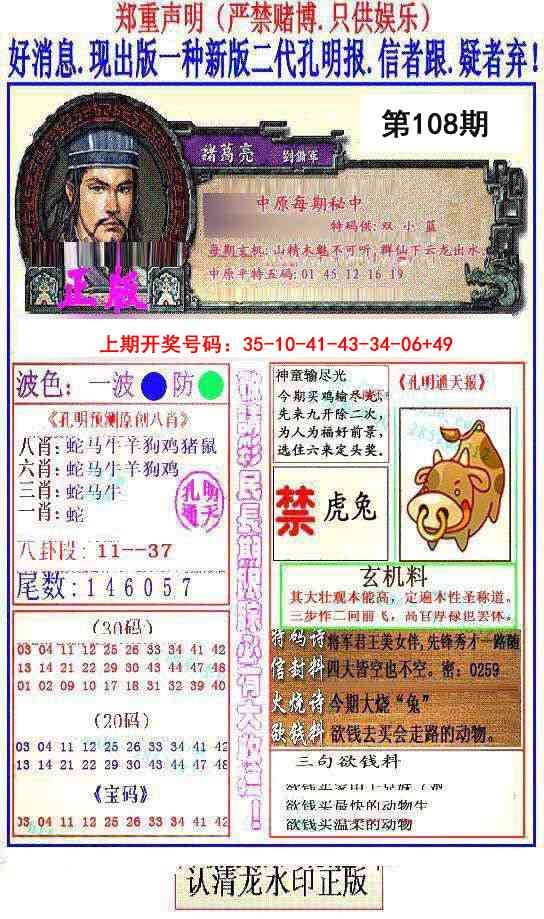 郑重声明（严禁赌博.只供娱乐）
好消息.现出版一种新版二代孔明报.信者跟.疑者弃!
第108期
諸葛亮 劉備軍
中原每期秘中
特码供: 双 小 蓝
每期玄机: 山精木魅不可听,群仙下云龙出水
中原平特五码: 01 45 12 16 19
正版
上期开奖号码：35-10-41-43-34-06+49
波色: 一波 防
《孔明预测原创八肖》
八肖: 蛇马牛羊狗鸡猪鼠
六肖: 蛇马牛羊狗鸡
三肖: 蛇马牛
一肖: 蛇
孔明通天
八卦段: 11--37
尾数: 146057
(30码)
03 04 11 12 25 26 33 34 41 42
13 14 21 22 29 30 43 44 47 48
01 02 09 10 17 18 31 32 39 40
(20码)
03 04 11 12 25 26 33 34 41 42
13 14 21 22 29 30 43 44 47 48
《宝码》
03 04 11 12 25 26 33 34 41 42
神童输尽光
今期买鸡输尽光,
先来九开除二次,
为人为福好前景,
选住六来定头奖.
《孔明通天报》
禁 虎兔
玄机料
其大壮观本能高, 定遍本性圣称道。
特码诗 将军君王美女伴,先锋秀才一路随
信封料 四大皆空也不空。密: 0259
火烧诗 今期大烧“兔”
欲钱料 欲钱去买会走路的动物。
三句欲钱料
欲钱买最快的动物生
欲钱买温柔的动物
认清龙水印正版